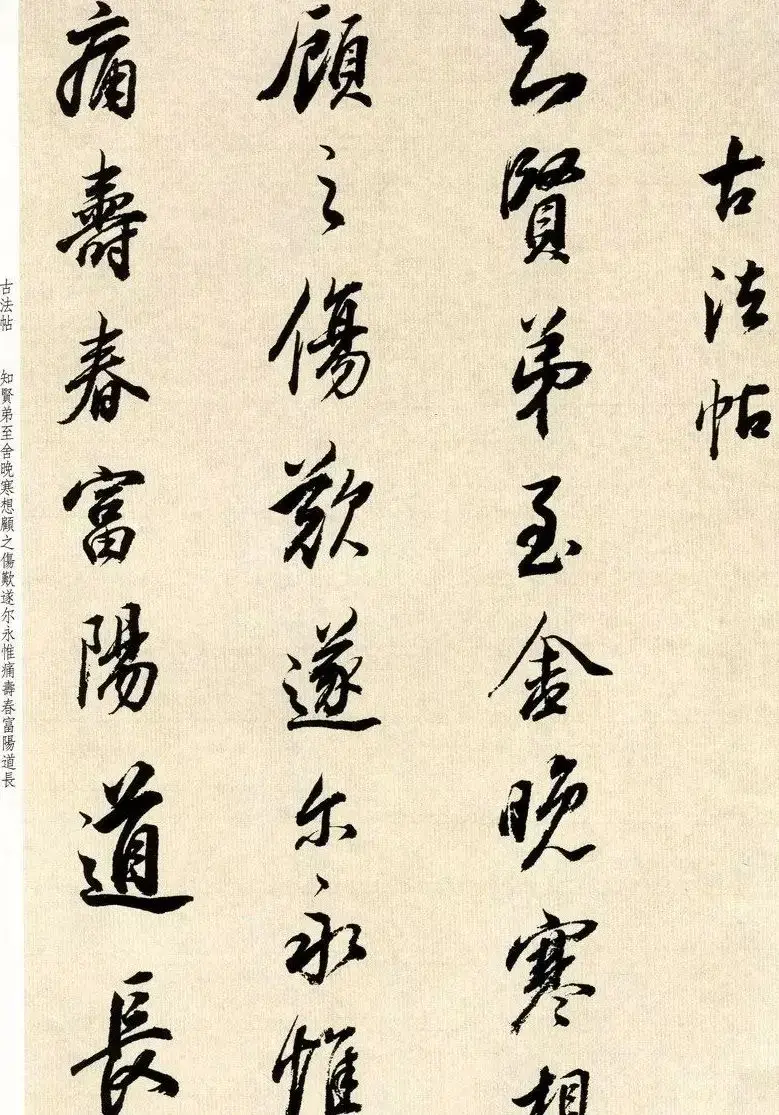 古法帖
知賢弟至舍晚寒想
顧之傷歎遂尔永惟
痛壽春富陽道長
古法帖 知賢弟至舍晚寒想顧之傷歎遂尔永惟痛壽春富陽道長